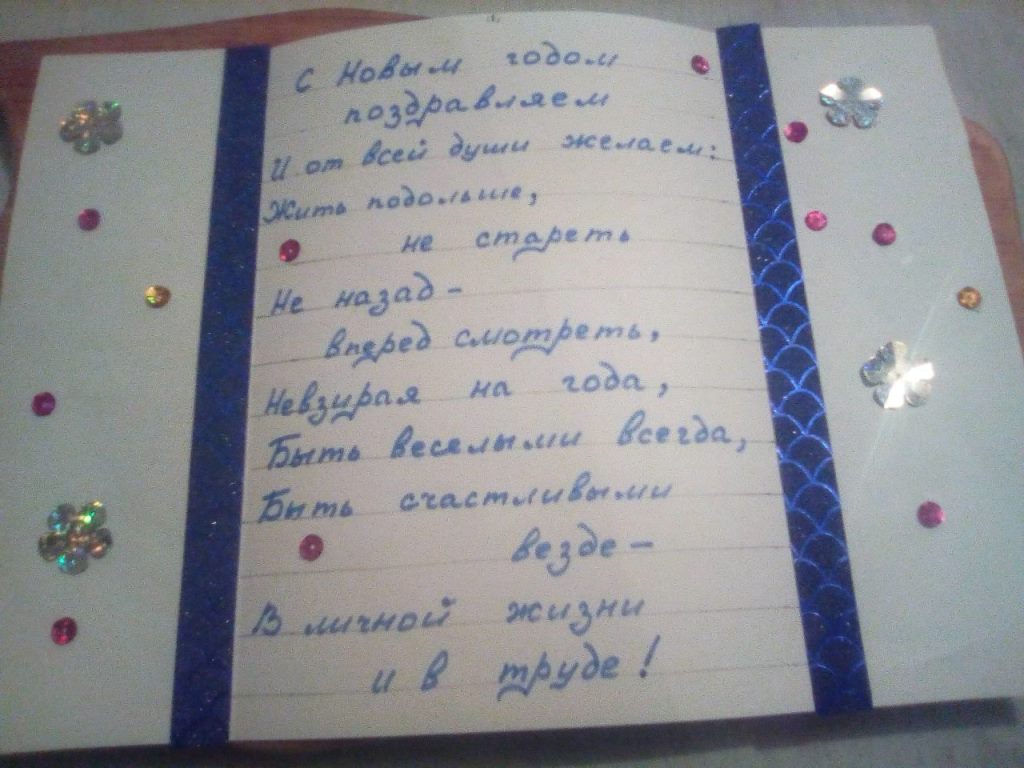 С Новым годом
поздравляем
И от всей души желаем:
Жить подольше,
не стареть
Не назад -
вперед смотреть,
Невзирая на года,
Быть веселыми всегда,
Быть счастливыми
везде -
В личной жизни
и в труде!